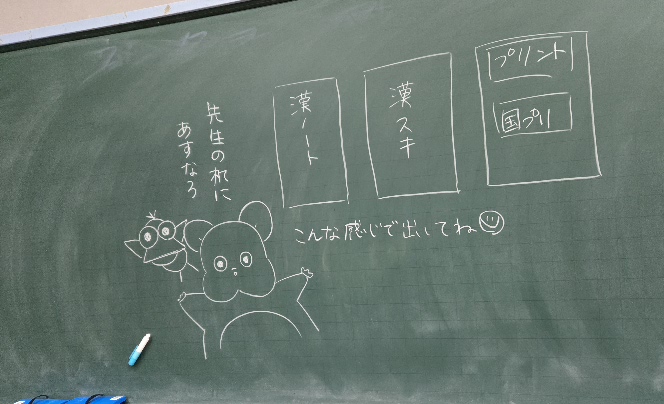 先生の机に
あすなろ
漢ノート
漢スキ
プリント
国プリ
こんな感じで出してね